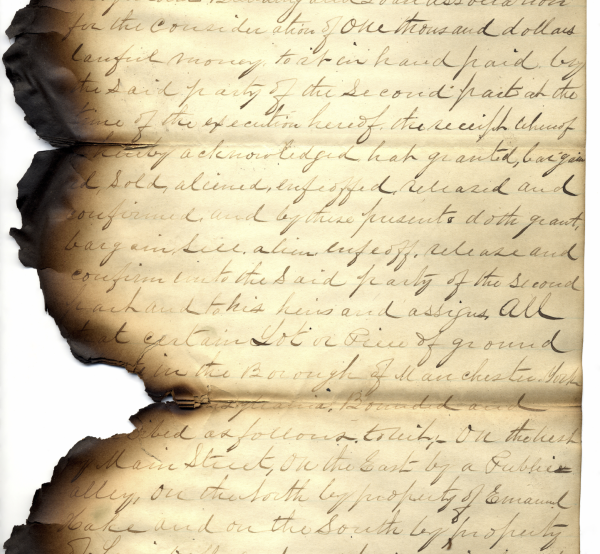 Building and Loan association
for the consideration of One thousand dollars
lawful money, to at in hand paid by
the Said party of the Second part at the
time of the execution hereof. the receipt whereof
hereby acknowledged hath granted, bargain
ed, Sold, aliened, enfeoffed, released and
confirmed. and by these presents doth grant,
bargain, Sell. alien. enfeoff. release and
confirm unto the Said party of the Second
part and to his heirs and assigns, All
that certain Lot or Piece of ground
in the Borough of Manchester. York
Bounded and
as follows. to wit,- On the West
Main Street, On the East by a Public
alley, On the North by property of Emanuel
and on the South by property